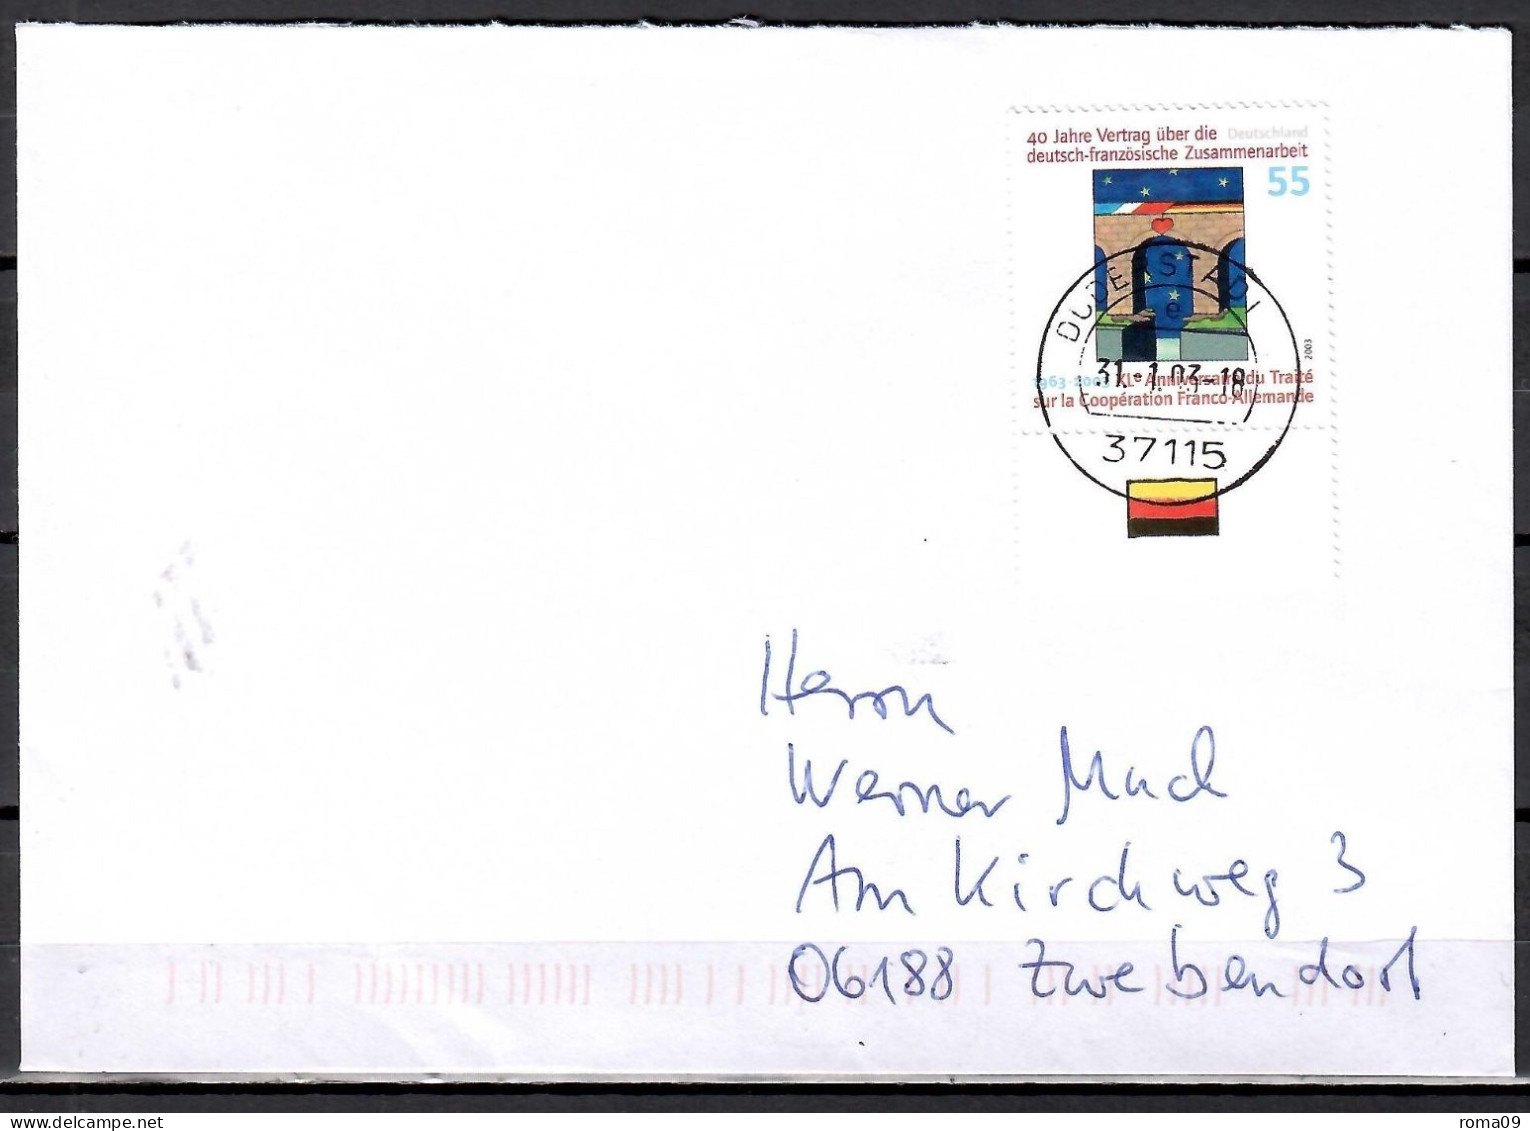 40 Jahre Vertrag über die Deutschland
deutsch-französische Zusammenarbeit
55
DUDERSTADT
e
2003
31.-1.03-18
1963-2003 XLe Anniversaire du Traité
sur la Coopération Franco-Allemande
37115
Herrn
Werner Mach
Am Kirchweg 3
06188 Zwebendorf
delcampe.net
roma09